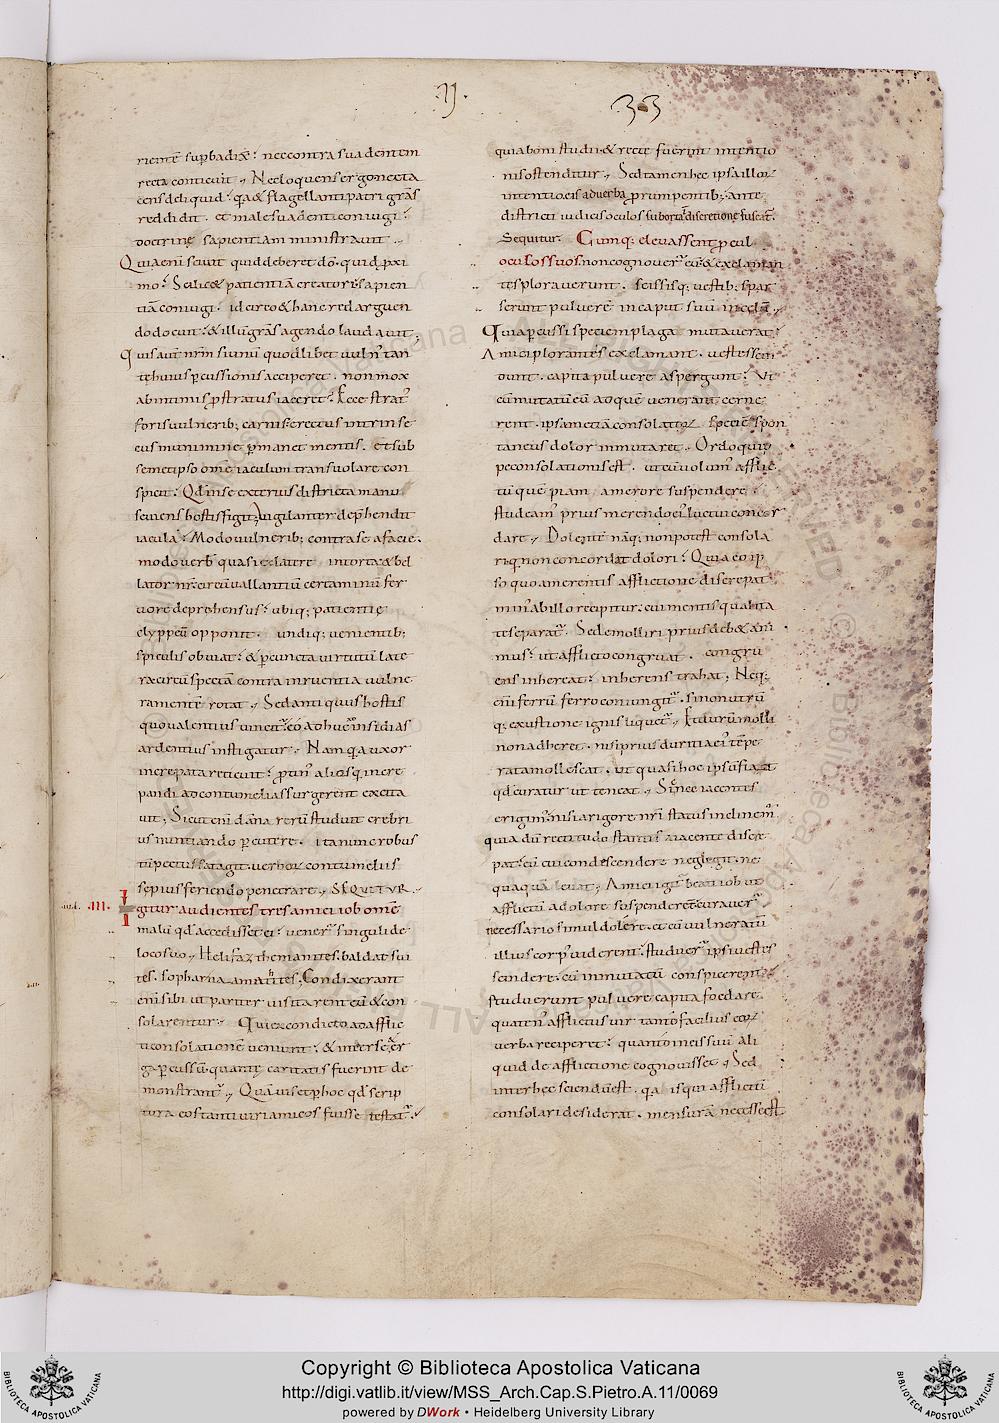 .IJ.
33
rientē sup̄badiǣ? nec contra suadentem
recta conticuit; Nec loquens ergo recta
cens deliquid? q̄a & flagellanti patri grās
reddidit. et male suadenti coniugi?
doctrinę sapientiam ministravit.
Quia enī scivit quid deberet dō. quid p̄xi
mo?
tiā coniugi. idcirco & hanc redarguen
do docuit? & illū grās agendo laudavit;
Quis aut̄ nr̄m si unū quodlibet vuln' tan
tę huius p̄cussionis acciperet. non mox
ab intimis p̄stratus iaceret? Ecce strat'
foris vulnerib; carnis? erectus intrinse
cus munimine p̄manet mentis. et sub
semetipso om̄e iaculum transvolare con
spicit? Qd in se exterius districta manu
seviens hostis figit; vigilanter dep̄hendit
iacula? Modo vulnerib; contra se a facie.
modo verb' quasi e latere intorta & bel
lator nr̄ circūvallantiū certaminū fer
vore deprehensus? ubiq; patientię
clyppeū opponit. undiq; venientib;
spiculis obviat? & p̄ cuncta virtutū late
ra circūspectā contra inruentia vulne
ra mentē rotat; Sed antiquus hostis
quo valentius vincit̄. eo adhuc in insidias
ardentius instigatur; Nam q̄a uxor
increpata reticuit? p̄tin' alios q̄ incre
pando ad contumelias surgerent excita
vit; Sicut enī dāna rerū studuit crebri
us nuntiando p̄cutere. ita nunc robus
tū pectus satagit verbor̄ contumeliis
sepius feriendo penetrare; SEQUITUR.
.III. Igitur audientes tres amici iob om̄e
malū qd accedisset ei? vener̄ singuli de
loco suo; Helifaz themanites. baldat sui
tes. sophar naamatites; Condixerant
enī sibi ut pariter visitarent eū & con
solarentur; Qui ex condicto ad afflic
ti consolationē veniunt? & inter se & er
ga p̄cussū. quantę caritatis fuerint de
monstrant̄; Quāvis et p̄ hoc qd scrip
tura eos tanti viri amicos fuisse testat̄;
quia boni studii & recte fuerunt intentio
nis ostenditur; Sed tamen hec ipsa illor̄
intentio eis ad verba prumpentib; ante
districti iudicis oculos suborta discretione fuscat̄.
Sequitur. Cumq; elevassent p̄cul
oculos suos. non cognover̄ eū. & exclaman
tes ploraverunt. scissisq; vestib; spar
serunt pulverē in caput suū in cęlū;
Quia p̄cussi speciem plaga mutaverat?
Amici plorantes exclamant. vestes scin
dunt. capita pulvere aspergunt? Ut
eū mutatū cū ad quē venerant cerne
rent. ipsam etiā consolator̄ speciē spon
taneus dolor inmutaret; Ordo quip
pe consolationis est. ut cū volum' afflic
tū quēpiam a merore suspendere.
studeam' prius merendo ei' luctui concor
dare; Dolentē nāq; non potest consola
ri. q̄ non concordat dolori? Quia eo ip
so quo a merentis afflictione discrepat.
min' ab illo recipitur. cui mentis qualita
te separat̄. Sed emolliri prius deb& ani
mus? ut afflicto congruat. congru
ens inhereat? inherens trahat; Neq;
enī ferrū ferro coniungit̄. si non utrū
q; exustione ignis liquet̄; Et durū molli
non adheret. nisi prius duritia ei' tēpe
rata mollescat. ut quasi hoc ipsū fiat
qd curatur ut teneat; Sic nec iacentes
erigim'. nisi a rigore nr̄i status inclinem'.
quia dū rectitudo stantis a iacente discre
pat? eū cui condescendere neglegit. ne
quaquā levat; Amici igit̄ beati iob ut
afflictū a dolore suspenderent curaver̄
necessario simul dolere. et cū vulneratū
illius corp' viderent. studuer̄ ipsi vestes
scindere. cū inmutatū conspicerent.
studuerunt pulvere capita foedare.
quaten' afflictus vir tanto facilius eor̄
verba reciperet? quanto in eis suū ali
quid de afflictione cognovisset; Sed
inter hec sciendū est. q̄a is qui afflictū
consolari desiderat. mensurā necesse est
Copyright © Biblioteca Apostolica Vaticana
http://digi.vatlib.it/view/MSS_Arch.Cap.S.Pietro.A.11/0069
powered by DWork • Heidelberg University Library